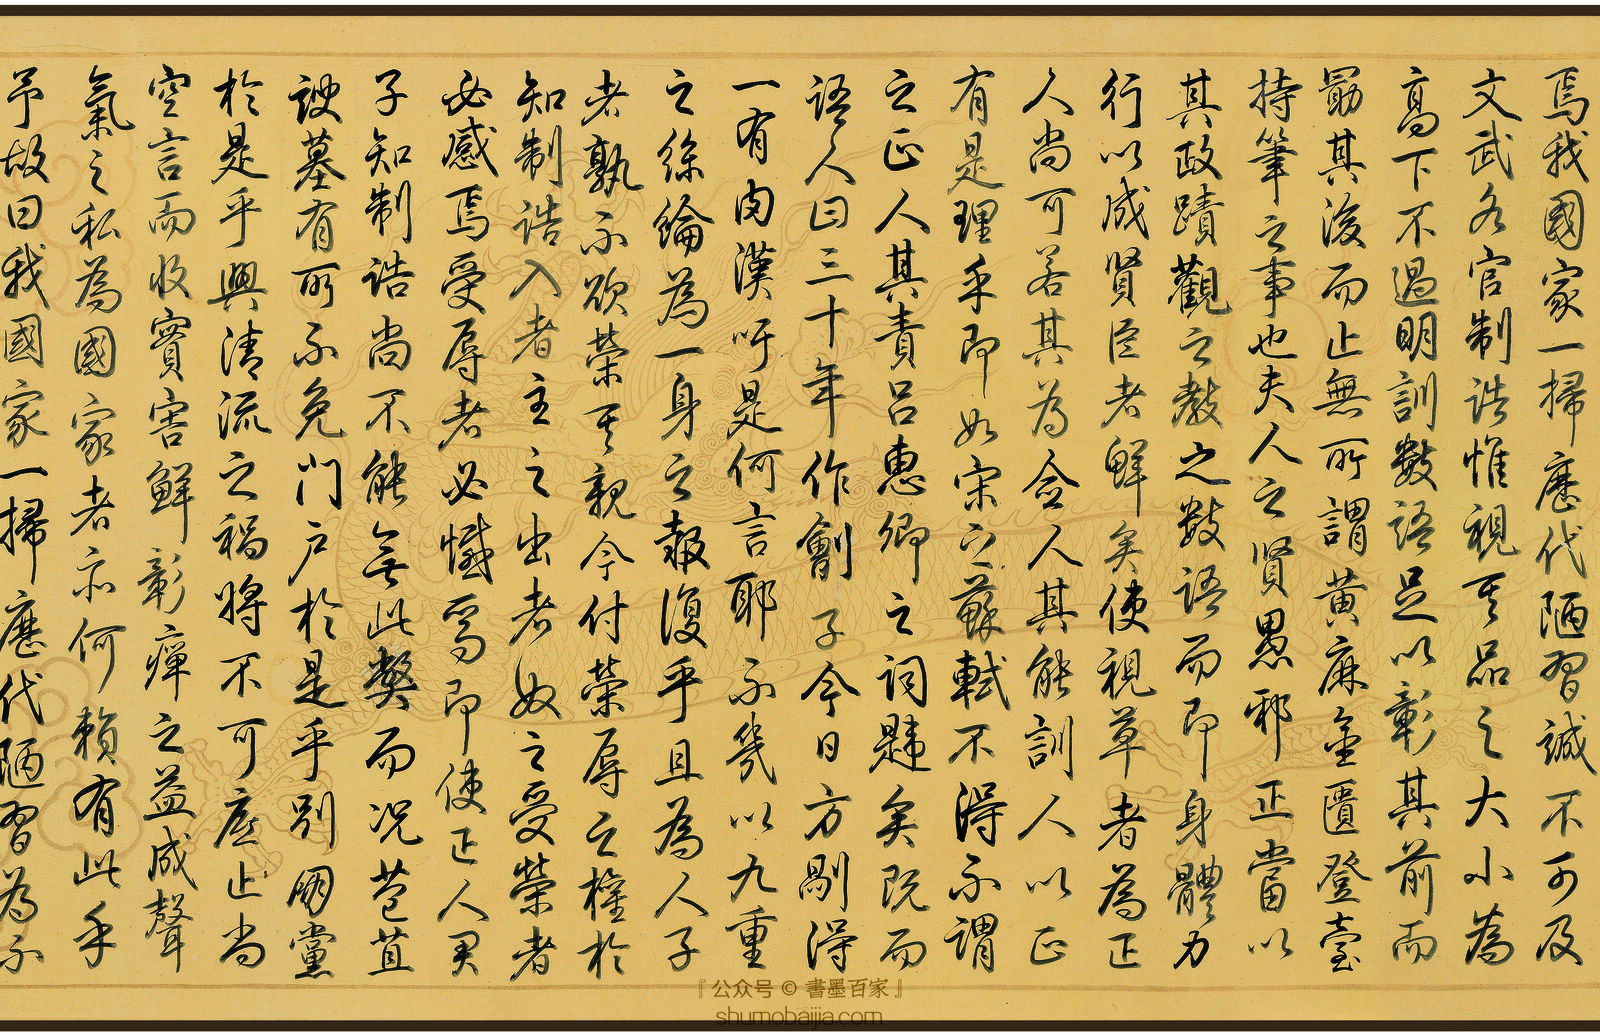 焉我國家一掃歷代陋習誠不可及
文武各官制誥惟視其品之大小為
高下不過明訓數語足以彰其前而
勗其後而止無所謂黃麻金匱登臺
持筆之事也夫人之賢愚邪正當以
其政蹟觀之教之數語而即身體力
行以咸賢臣者鮮矣使視草者為正
人尚可若其為僉人其能訓人以正
有是理乎即如宋之蘇軾不得不謂
之正人其責呂惠卿之詞韙矣既而
語人曰三十年作劊子今日方剮得
一有肉漢吁是何言耶不幾以九重
之絲綸為一身之報復乎且為人子
者孰不欲榮其親今付榮辱之權於
知制誥入者主之出者奴之受榮者
必感焉受辱者必憾焉即使正人君
子知制誥尚不能無此弊而況苞苴
諛墓有所不免門戶於是乎別朋黨
於是乎興清流之禍將不可底止尚
空言而收實害鮮彰癉之益成聲
氣之私為國家者亦何賴有此乎
予故曰我國家一掃歷代陋習為不
『公众号 © 書墨百家』
shumobaijia.com